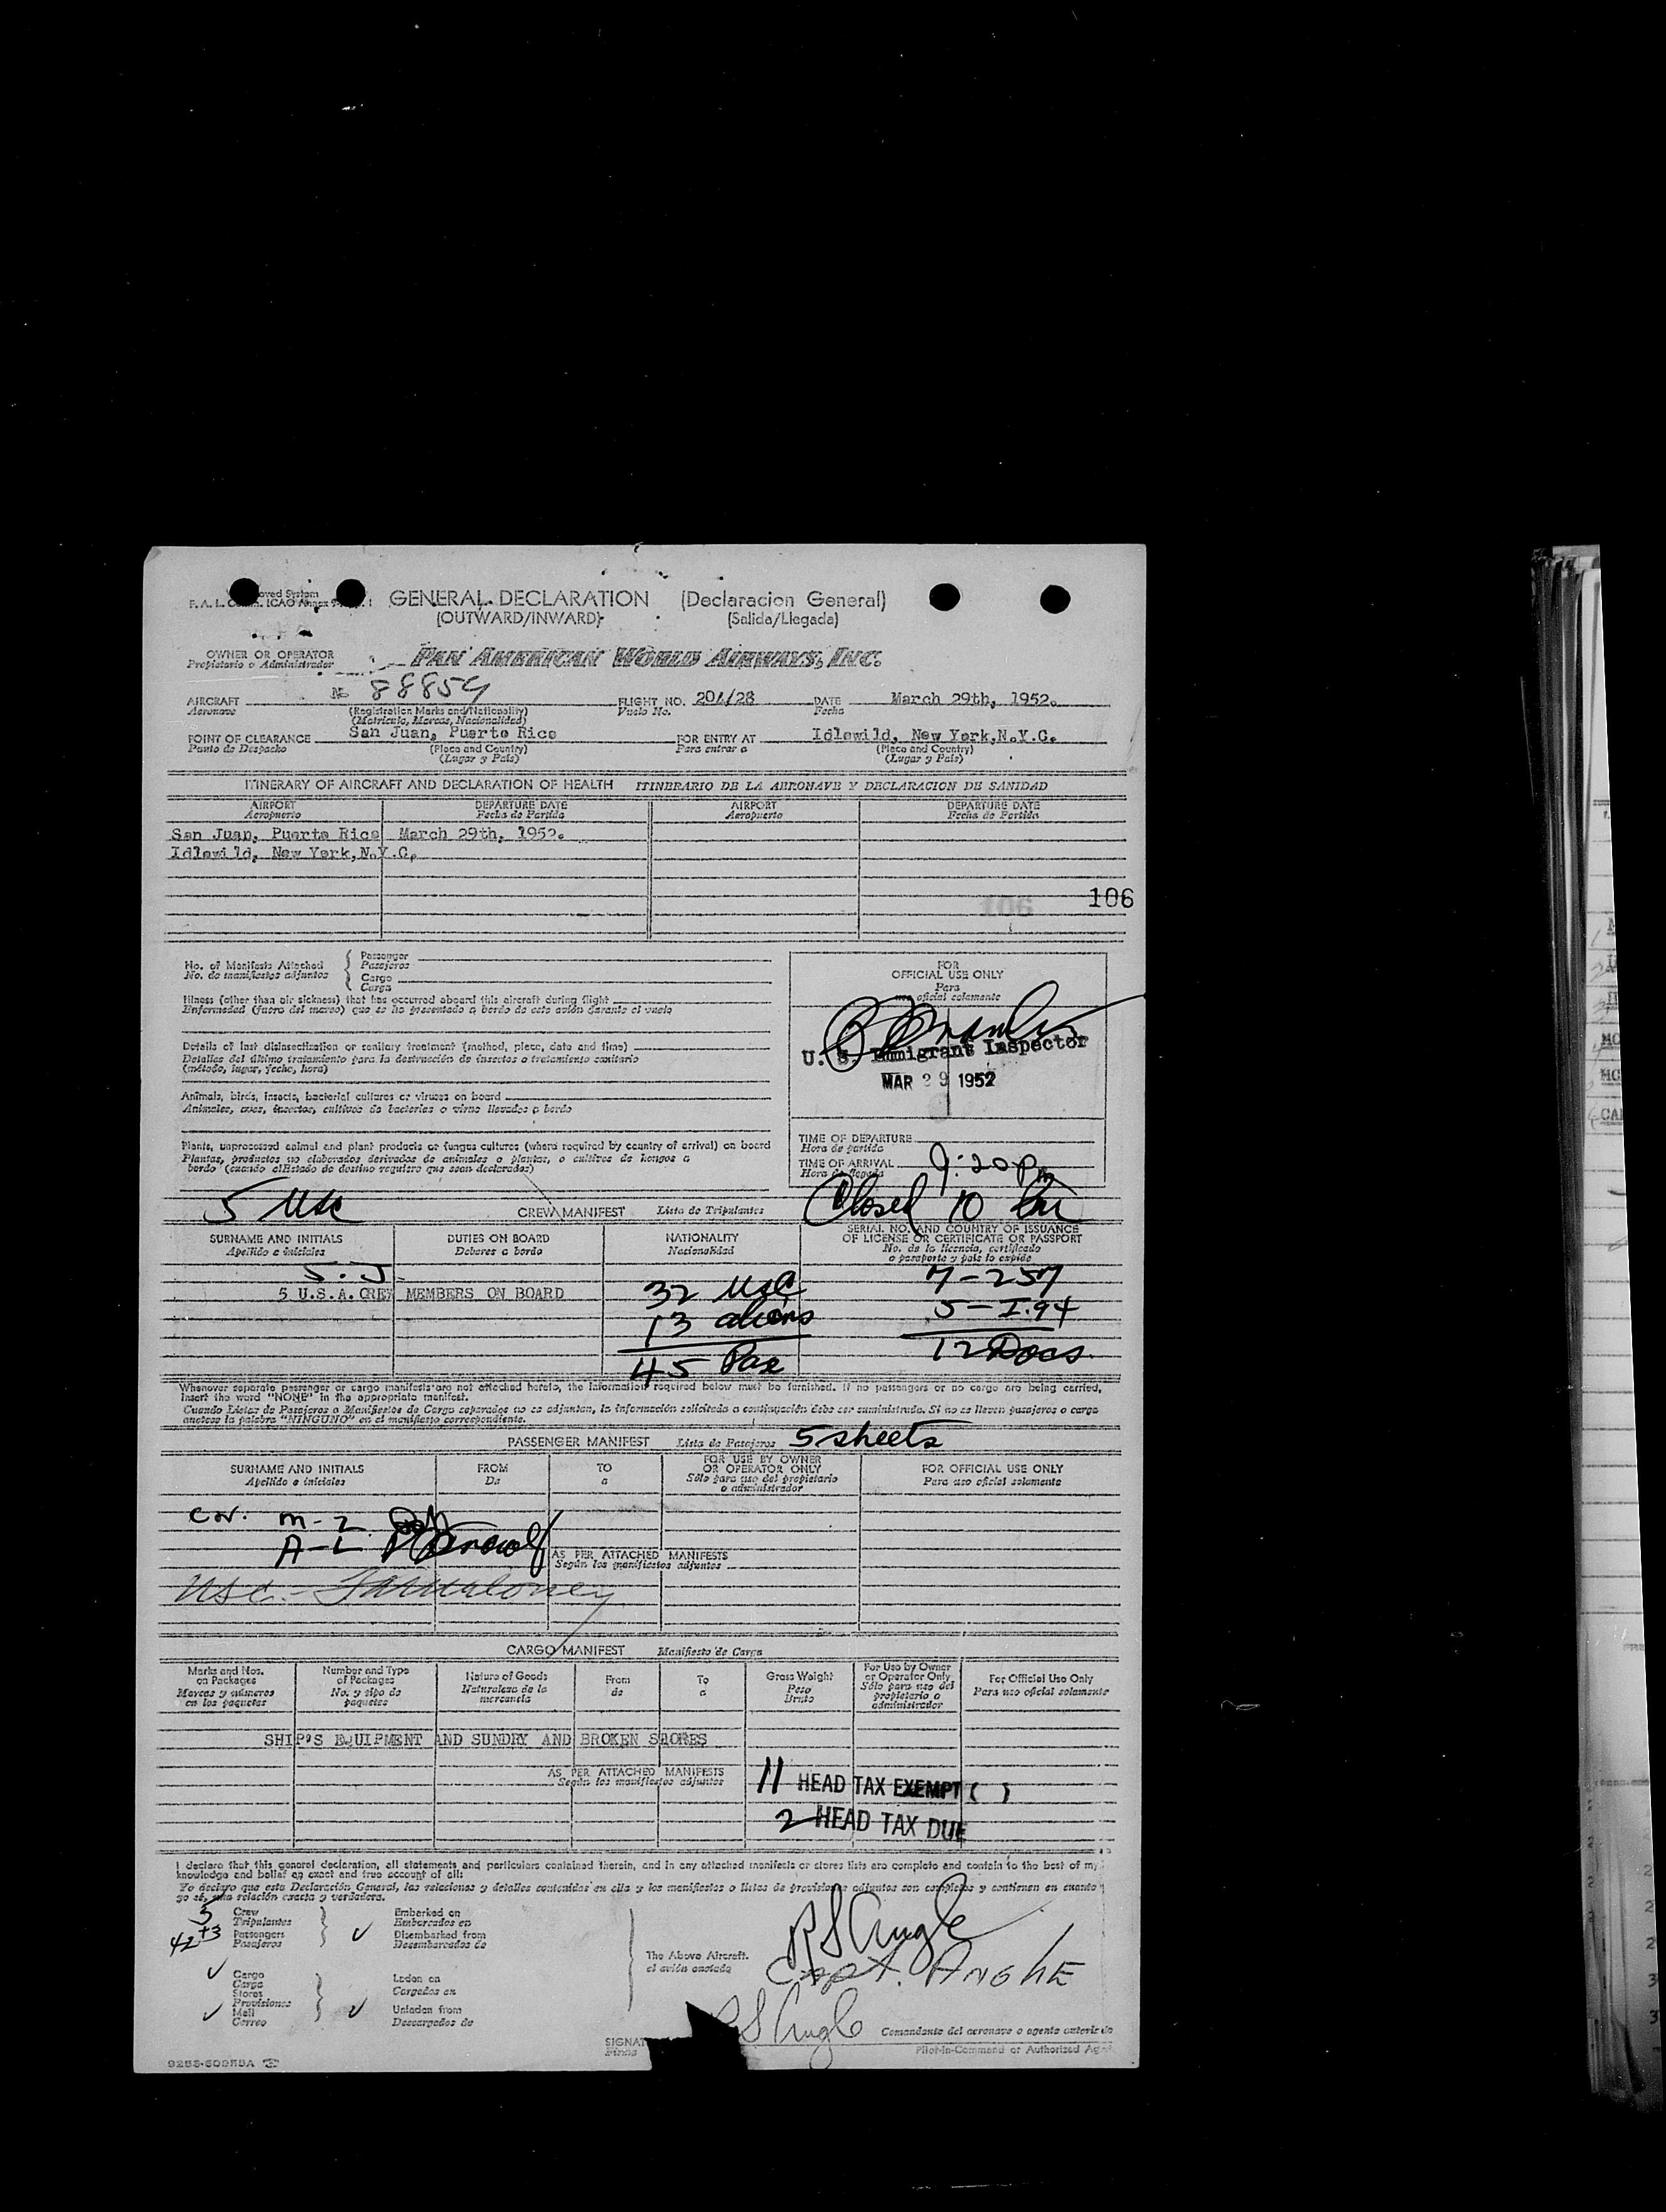 GENERAL DECLARATION (Declaracion General)
(OUTWARD/INWARD) (Salida/Llegada)
OWNER OR OPERATOR
Propietario o Administrador
PAN AMERICAN WORLD AIRWAYS, INC.
AIRCRAFT N 88859 FLIGHT NO. DATE March 29th, 1952.
Aeronave (Registration Marks and Nationality) Vuelo No. Fecha
(Matricula, Marcas, Nacionalidad)
POINT OF CLEARANCE San Juan, Puerto Rico FOR ENTRY AT Idlewild, New York,N.Y.C.
Punto de Despacho (Place and Country) Para entrar a (Place and Country)
(Lugar y País) (Lugar y País)
ITINERARY OF AIRCRAFT AND DECLARATION OF HEALTH ITINERARIO DE LA AERONAVE Y DECLARACION DE SANIDAD
AIRPORT DEPARTURE DATE AIRPORT DEPARTURE DATE
Aeropuerto Fecha de Partida Aeropuerto Fecha de Partida
San Juan, Puerto Rico March 29th, 1952.
Idlewild, New York,N.Y.C.
106
No. of Manifests Attached
No. de manifiestos adjuntos
Passenger
Pasajeros
Cargo
Carga
Illness (other than air sickness) that has occurred aboard this aircraft during flight
Enfermedad (fuera del mareo) que se ha presentado a bordo de este avión durante el vuelo
Details of last disinsectization or sanitary treatment (method, place, date and time)
Detalles del último tratamiento para la destrucción de insectos o tratamiento sanitario
(método, lugar, fecha, hora)
Animals, birds, insects, bacterial cultures or viruses on board
Animales, aves, insectos, cultivos de bacterias o virus llevados a bordo
Plants, unprocessed animal and plant products or fungus cultures (where required by country of arrival) on board
Plantas, productos no elaborados derivados de animales o plantas, o cultivos de hongos a
bordo (cuando el Estado de destino requiera que sean declarados)
FOR
OFFICIAL USE ONLY
Para
uso oficial solamente
U. S. Immigrant Inspector
MAR 29 1952
TIME OF DEPARTURE
Hora de partida
TIME OF ARRIVAL 9:20 pm
Hora de llegada
Closed 10 pm
5 USC
CREW MANIFEST Lista de Tripulantes
SURNAME AND INITIALS DUTIES ON BOARD NATIONALITY SERIAL NO. AND COUNTRY OF ISSUANCE
OF LICENSE OR CERTIFICATE OR PASSPORT
Apellido e iniciales Deberes a bordo Nacionalidad No. de la licencia, certificado
o pasaporte y país lo expide
S.J.
5 U.S.A. CREW MEMBERS ON BOARD
32 USC
13 aliens
45 Pax
7-257
5-I.94
12 Docs.
Whenever separate passenger or cargo manifests are not attached hereto, the information required below must be furnished. If no passengers or no cargo are being carried,
insert the word "NONE" in the appropriate manifest.
Cuando Listas de Pasajeros o Manifiestos de Carga separados no se adjuntan, la información solicitada a continuación debe ser suministrada. Si no se llevan pasajeros o carga
anotese la palabra "NINGUNO" en el manifiesto correspondiente.
PASSENGER MANIFEST Lista de Pasajeros 5 sheets
SURNAME AND INITIALS FROM TO FOR USE BY OWNER
OR OPERATOR ONLY FOR OFFICIAL USE ONLY
Apellido e iniciales De a Sólo para uso del propietario
o administrador Para uso oficial solamente
m-z
A-L
AS PER ATTACHED MANIFESTS
Según los manifiestos adjuntos
USC.
CARGO MANIFEST Manifiesto de Carga
Marks and Nos.
on Packages
Marcas y números
en los paquetes
Number and Type
of Packages
No. y tipo de
paquetes
Nature of Goods
Naturaleza de la
mercancía
From
de
To
a
Gross Weight
Peso
Bruto
For Use by Owner
or Operator Only
Sólo para uso del
propietario o
administrador
For Official Use Only
Para uso oficial solamente
SHIP'S EQUIPMENT AND SUNDRY AND BROKEN STORES
AS PER ATTACHED MANIFESTS
Según los manifiestos adjuntos
11 HEAD TAX EXEMPT ( )
2 HEAD TAX DUE
I declare that this general declaration, all statements and particulars contained therein, and in any attached manifests or stores lists are complete and contain to the best of my
knowledge and belief an exact and true account of all:
Yo declaro que esta Declaración General, las relaciones y detalles contenidas en ella y los manifiestos o listas de provisiones adjuntos son completos y contienen en cuanto
yo sé, una relación exacta y verdadera.
5 Crew
Tripulantes
42+3 Passengers
Pasajeros
Embarked on
Embarcados en
Disembarked from
Desembarcados de
Cargo
Carga
Stores
Provisiones
Mail
Correo
Laden on
Cargados en
Unladen from
Descargados de
The Above Aircraft.
el avión anotado
RS Angle
Capt. ANGLE
RS Angle
SIGNAT
Firma
Comandante del aeronave o agente autorizado
Pilot-in-Command or Authorized Agent